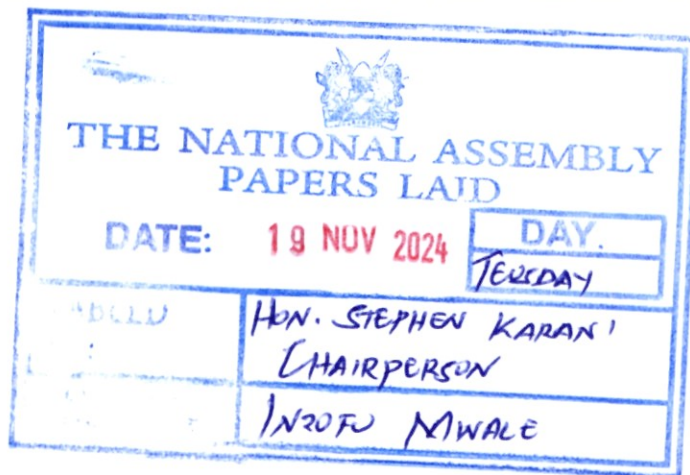 THE NATIONAL ASSEMBLY
PAPERS LAID
DATE: 19 NOV 2024
DAY.
TERSDAY
HON. STEPHEN KARANI
CHAIRPERSON
INZOFU MWALE